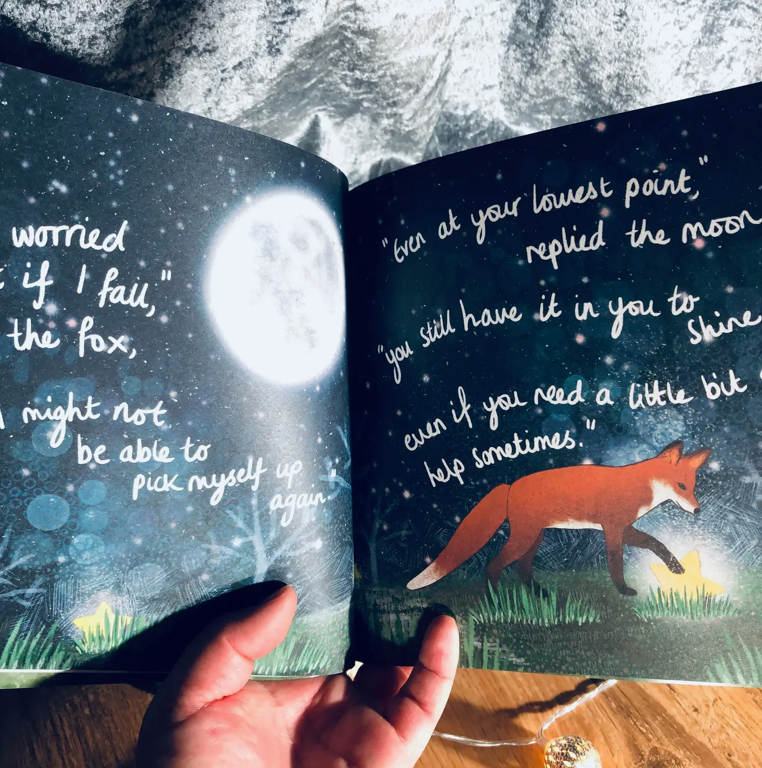 worried
if I fall,"
the fox,
might not
be able to
pick myself up
again."
"Even at your lowest point,"
replied the moon
"you still have it in you to
shine
even if you need a little bit
help sometimes."